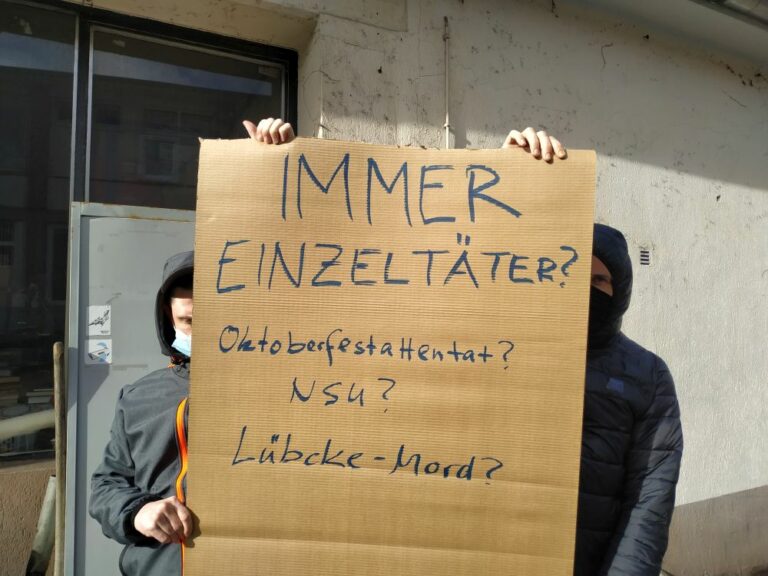 IMMER
EINZELTÄTER?
Oktoberfestattentat?
NSU?
Lübcke-Mord?